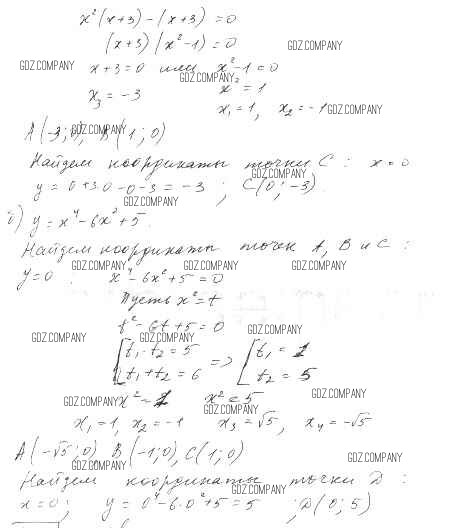 x²(x+3)-(x+3)=0
(x+3)(x²-1)=0
GDZ.COMPANY
GDZ.COMPANY
x+3=0 или x²-1=0
GDZ.COMPANY
x₃=-3 x²=1
x₁=1, x₂=-1 GDZ.COMPANY
A(-3;0), B(1;0)
GDZ.COMPANY
Найдем координаты точки C: x=0
GDZ.COMPANY
y=0+3·0-0-3=-3; C(0;-3).
GDZ.COMPANY
y=x⁴-6x²+5.
Найдем координаты точек A, B и C:
GDZ.COMPANY GDZ.COMPANY GDZ.COMPANY
y=0. x⁴-6x²+5=0
Пусть x²=t
t²-6t+5=0
GDZ.COMPANY GDZ.COMPANY GDZ.COMPANY
t₁·t₂=5 => t₁=1
t₁+t₂=6 t₂=5
GDZ.COMPANY x²=1 x²=5 GDZ.COMPANY
GDZ.COMPANY
x₁=1, x₂=-1 x₃=√5, x₄=-√5
A(-√5;0), B(-1;0), C(1;0)
GDZ.COMPANY GDZ.COMPANY
Найдем координаты точки D:
GDZ.COMPANY
x=0; y=0⁴-6·0²+5=5; D(0;5)